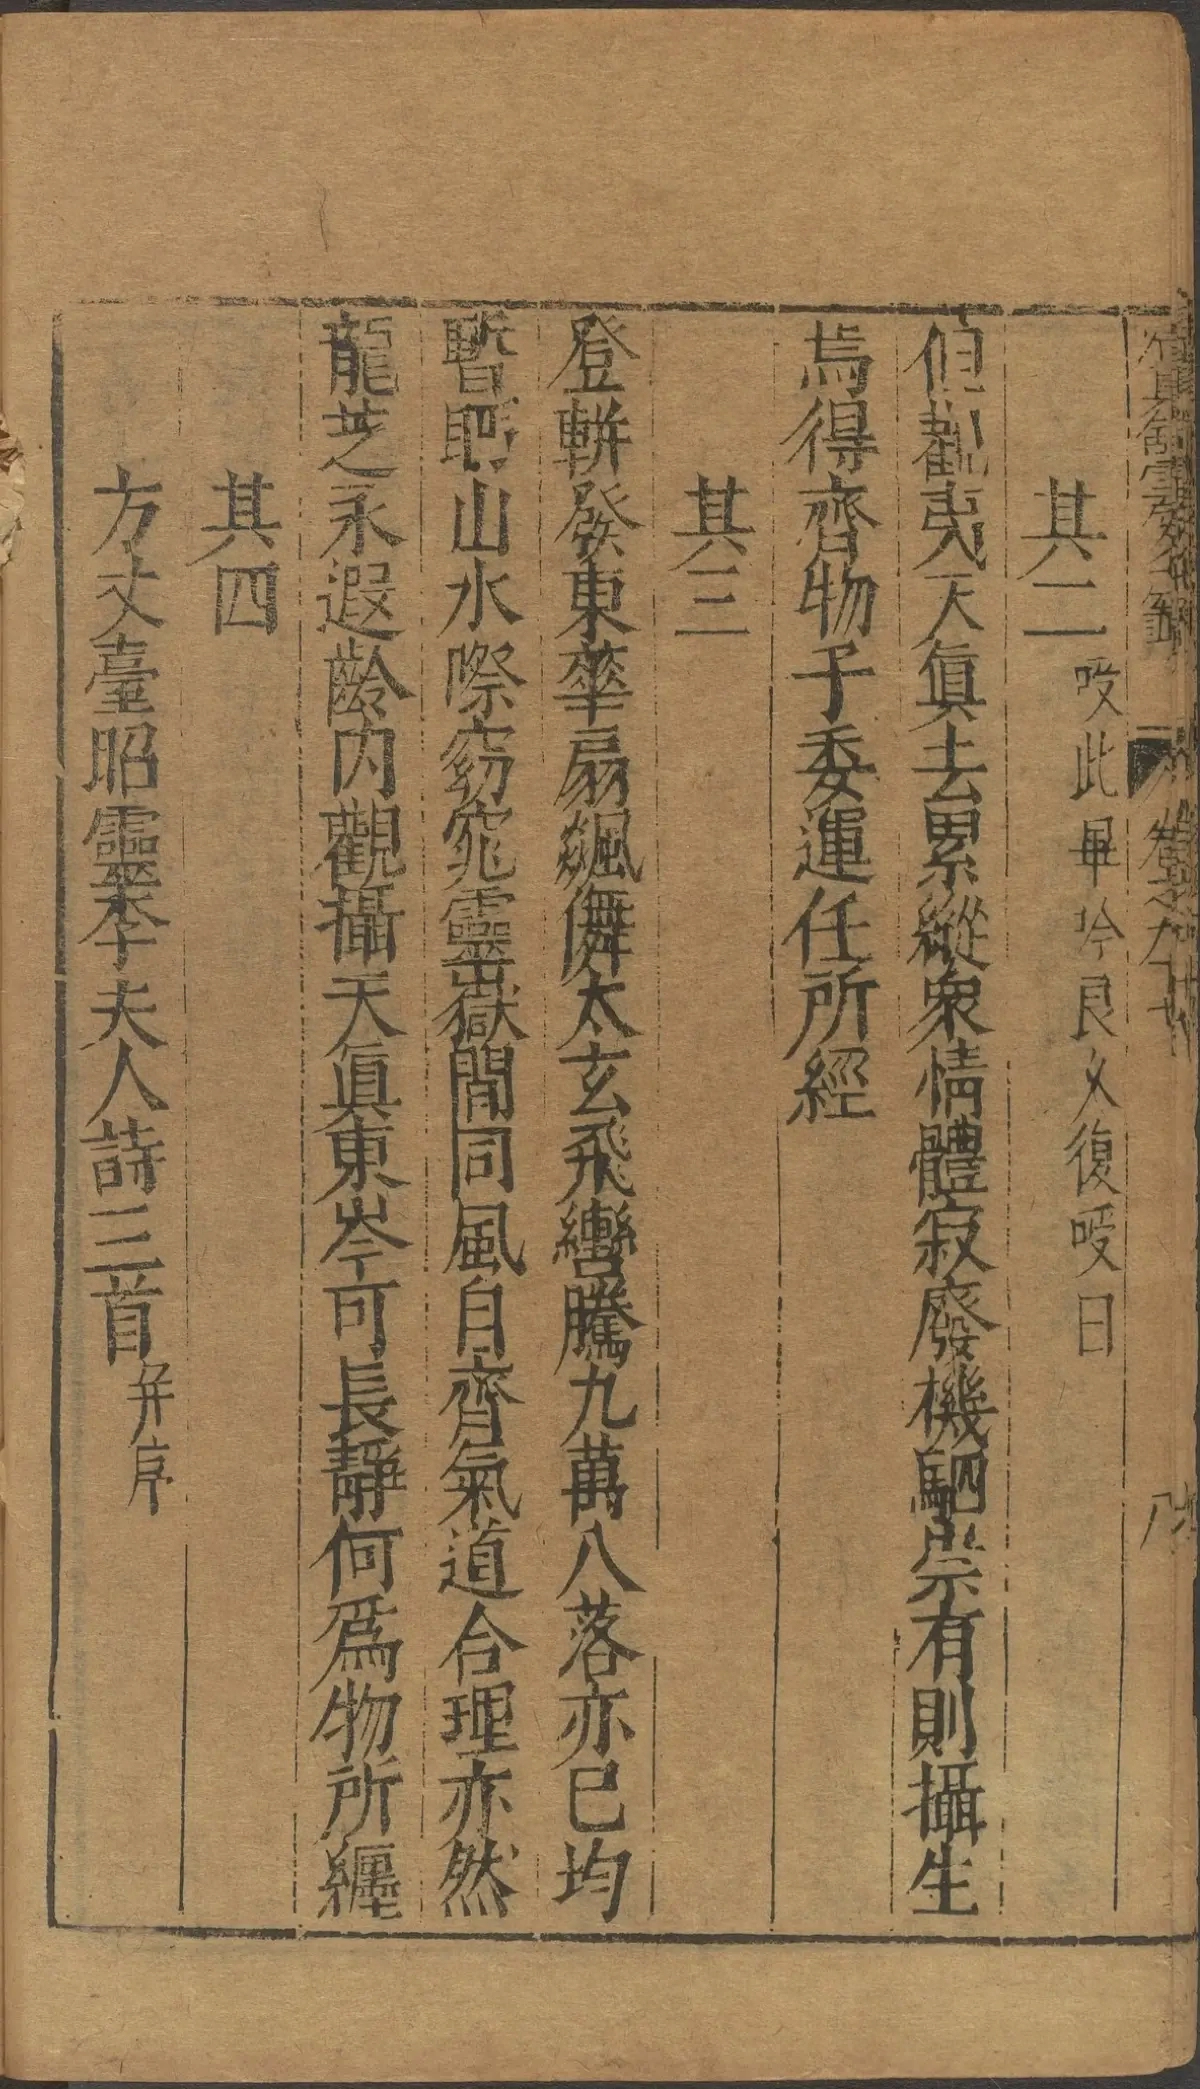 其二 㕮此畢吟良久復㕮曰
但觀夷天真去累縱衆情體寂廢機駟崇有則攝生
焉得齊物子委運任所經
其三
登軿發東華扇飆儛太玄飛轡騰九萬八落亦已均
暫眄山水際窈窕靈嶽間同風自齊氣道合理亦然
龍芝永遐齡内觀攝天真東岑可長靜何爲物所纏
其四
方丈臺昭靈李夫人詩三首 并序